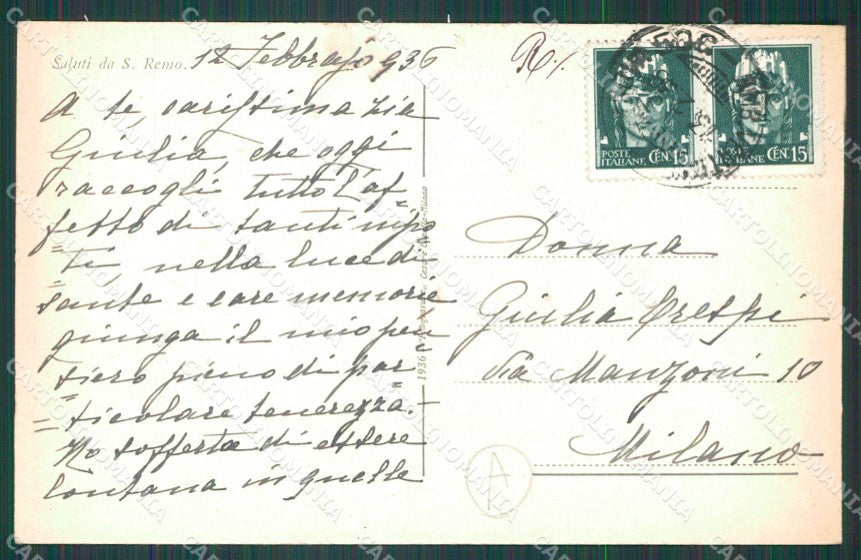 Saluti da S. Remo. 12 Febbrajo 936
A te, carissima zia
Giulia, che oggi
raccogli tutto l'af
fetto di tanti nipo
=ti, nella luce di
sante e care memorie
giunga il mio pen
=siero pieno di par
=ticolare tenerezza.-
Ho sofferto di essere
lontana in quelle
R./.
POSTE ITALIANE CEN. 15
POSTE ITALIANE CEN. 15
Donna
Giulia Crespi
Via Manzoni 10
Milano
A
1936
CARTOLINOMANIA